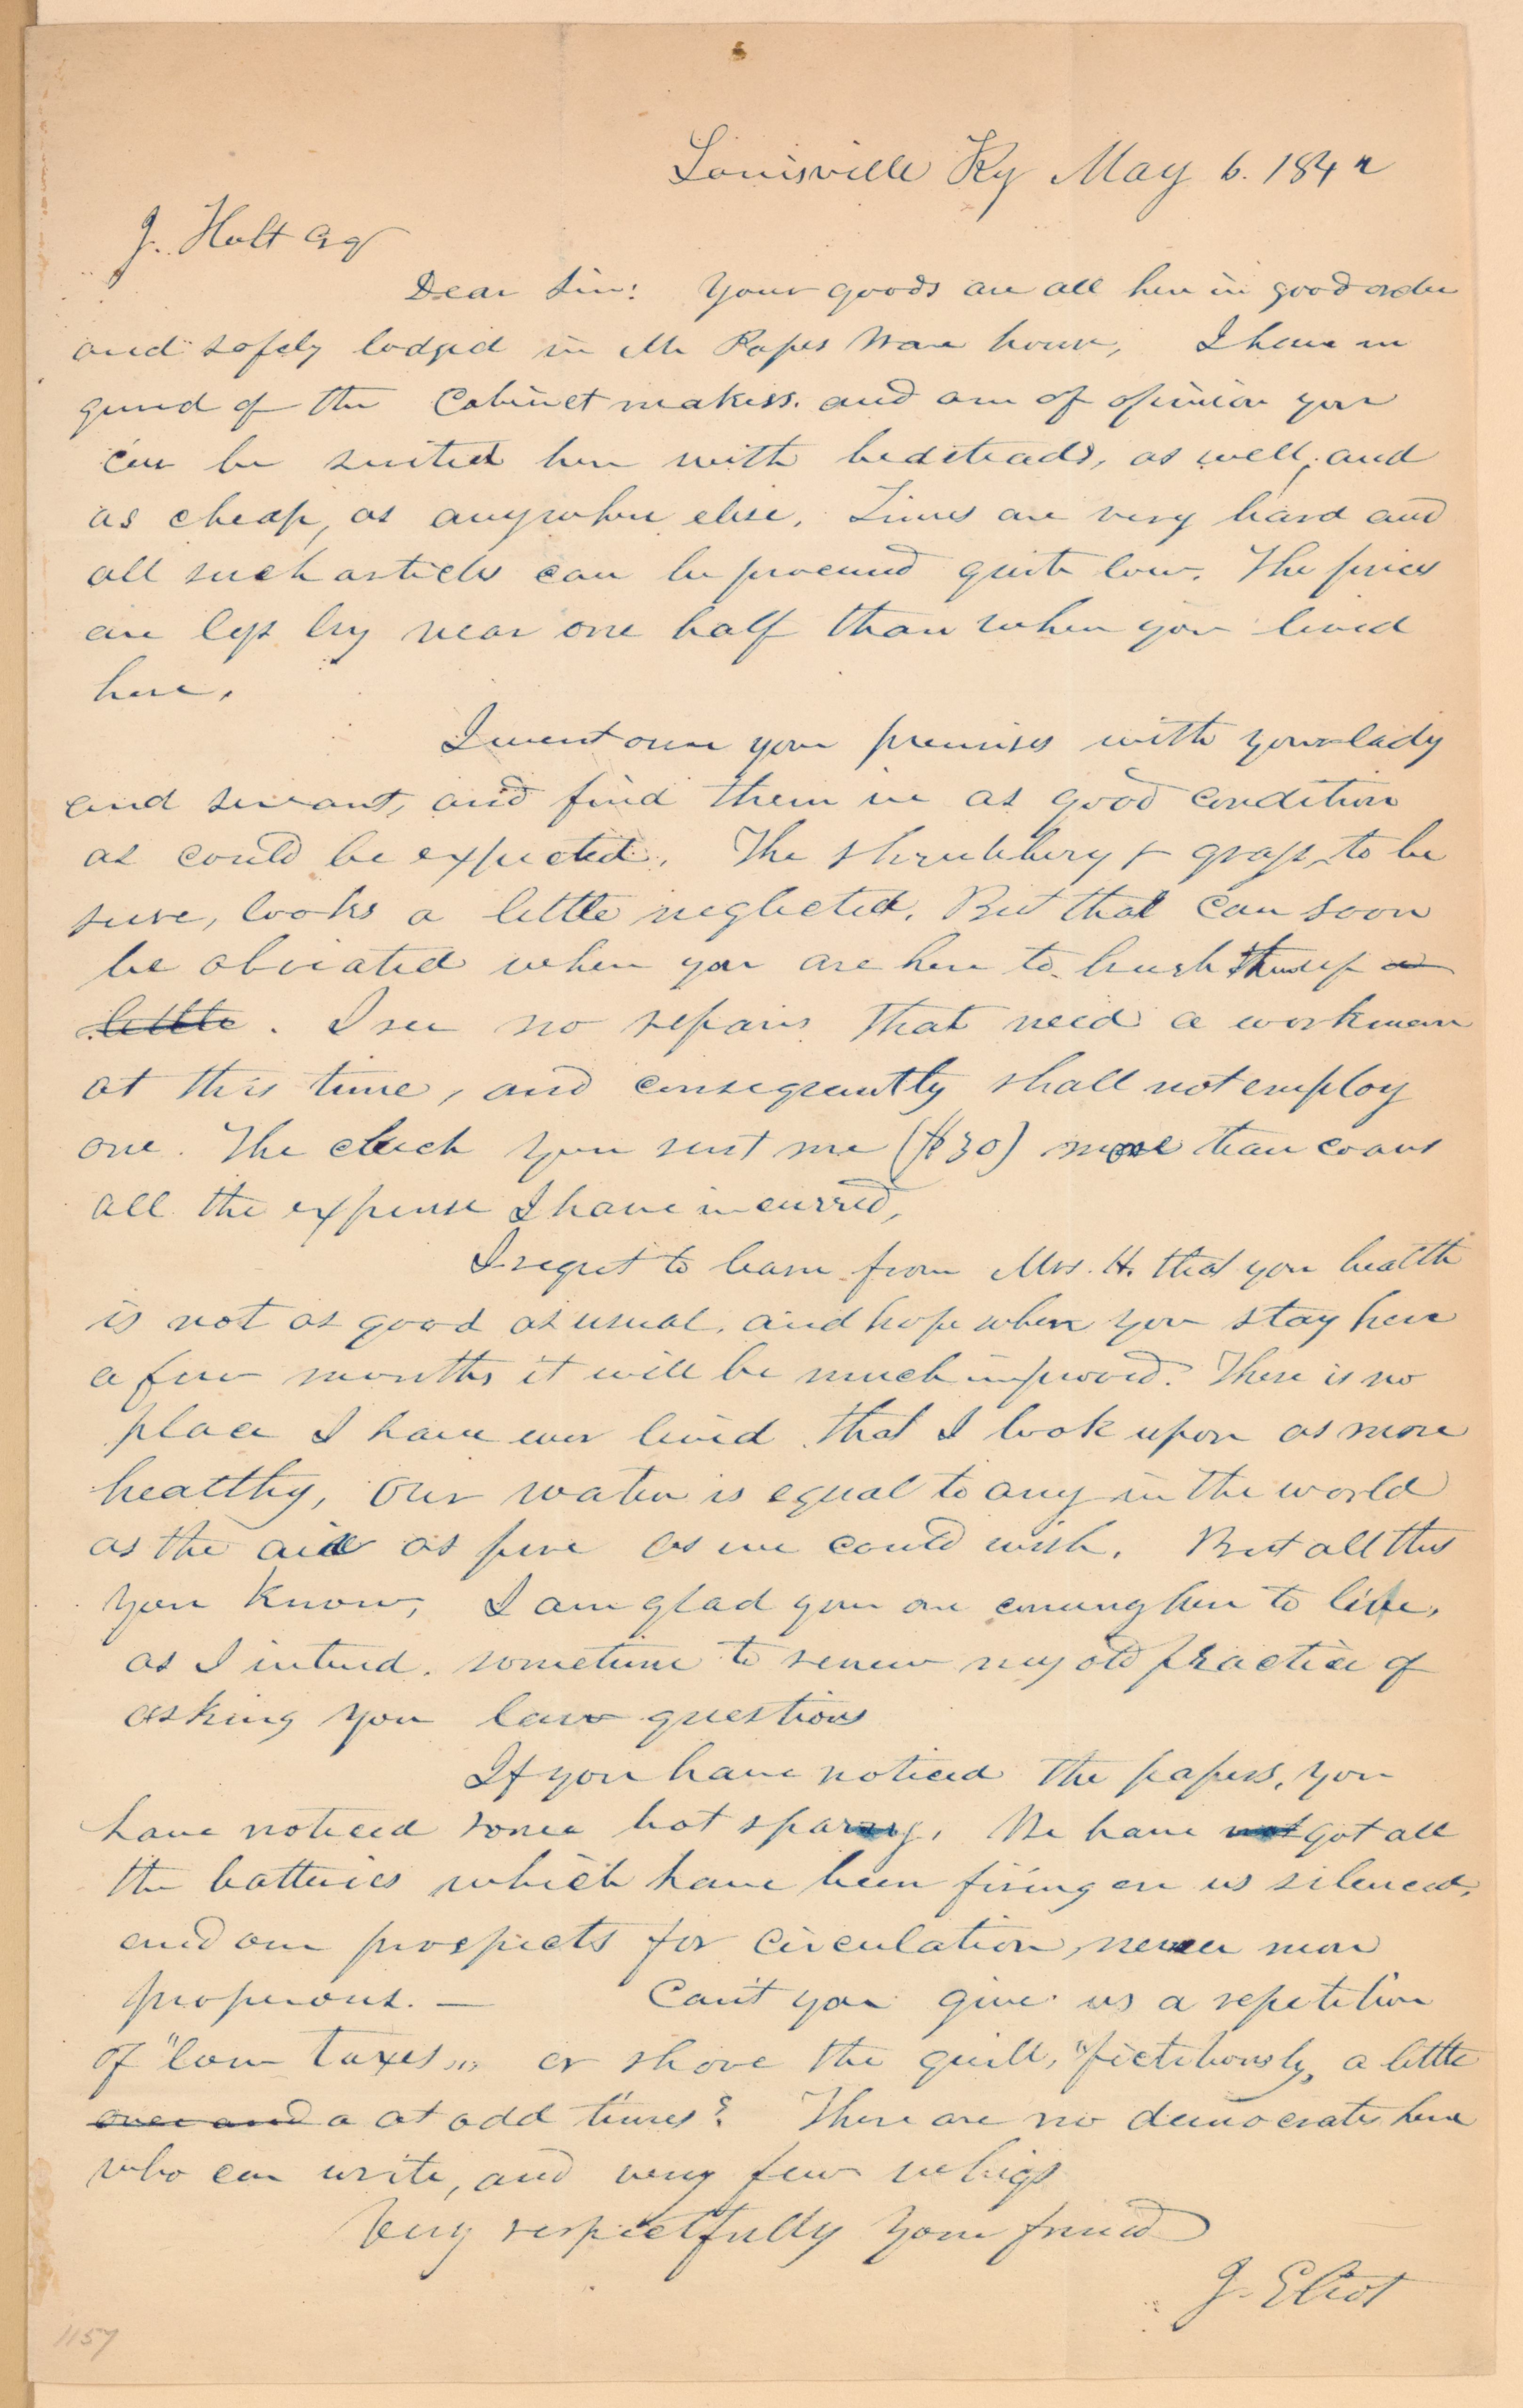 Louisville Ky May 6. 1842
J. Holt Esqr
Dear Sir: Your goods are all here in good order
and safely lodged in Mr Popes Ware house, I have in
quired of the Cabinet makers. and am of opinion you
can be suited here with bedsteads, as well, and
as cheap, as anywhere else. Times are very hard and
all such articles can be procured quite low. The prices
are less by near one half than when you lived
here.
I went over your premises with your lady
and servant, and find them in as good condition
as could be expected. The shrubbery & grass, to be
sure, looks a little neglected. But that can soon
be obviated when you are here to brush them up a
little. I see no repairs that need a workman
at this time, and consequently shall not employ
one. The check you sent me ($30) more than covers
all the expense I have incurred,
I regret to learn from Mrs. H. that your health
is not as good as usual, and hope when you stay here
a few months it will be much improved. There is no
place I have ever lived that I look upon as more
healthy, Our water is equal to any in the world
as the air as pure as we could wish. But all this
you know, I am glad you are coming here to live,
as I intend sometime to renew my old practice of
asking you law questions
If you have noticed the papers, you
have noticed some hot sparring. We have not got all
the batteries which have been firing on us silenced,
and our prospects for circulation, never more
properous. — Can't you give us a repetition
of "low taxes," or shove the quill, "fictitiously, a little
over and a at odd times? There are no democrats here
who can write, and very few whigs
Very respectfully your friend
J. Eliot
1157